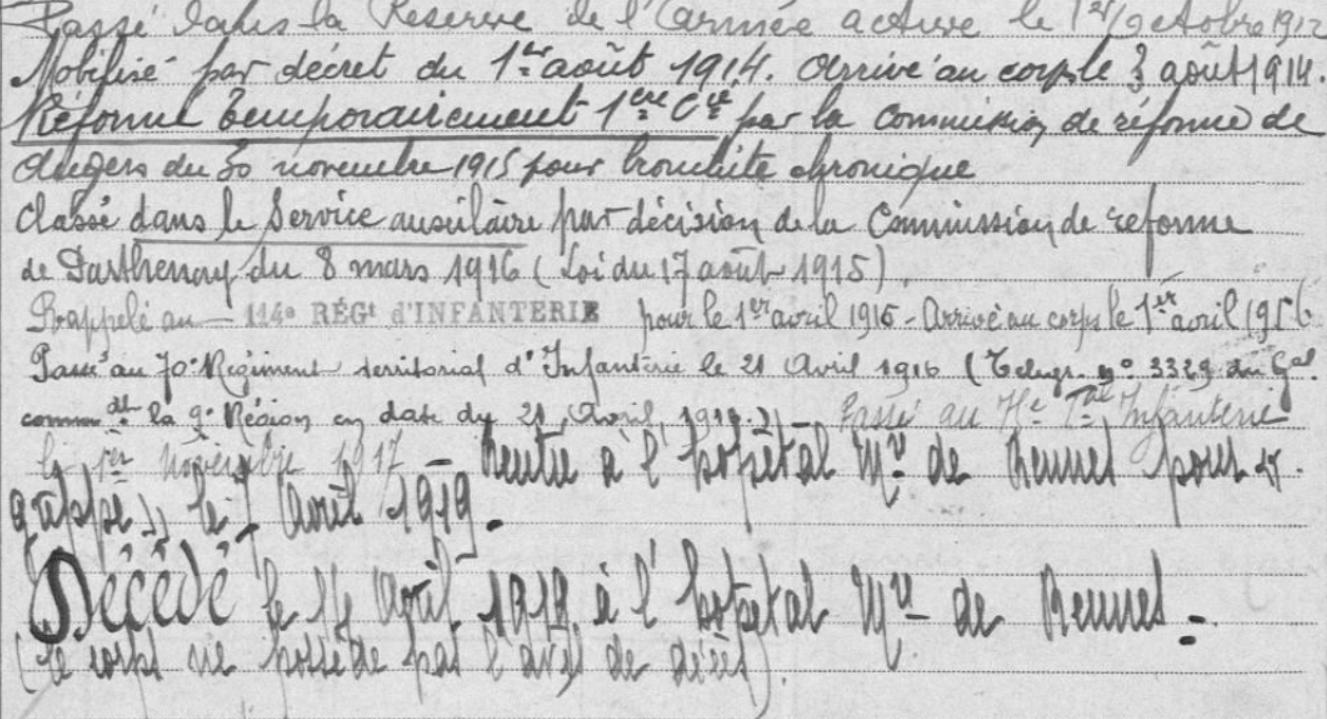 Passé dans la Réserve de l'armée active le 1er octobre 1912
Mobilisé par décret du 1er août 1914. Arrivé au corps le 3 août 1914.
Réformé temporairement 1ère Cié par la Commission de réforme de
Angers du 30 novembre 1915 pour bronchite chronique
Classé dans le Service auxiliaire par décision de la Commission de réforme
de Parthenay du 8 mars 1916 (Loi du 17 août 1915).
Rappelé au 114e RÉGt d'INFANTERIE pour le 1er avril 1916 - Arrivé au corps le 1er avril 1916
Passé au 70e Régiment territorial d'Infanterie le 21 Avril 1916 (Télegr. no 3329 du Gal
commdt la 9e Région en date du 21 Avril 1916.) Passé au Tal Infanterie
le 1er novembre 1917 - Rentré à l'hôpital Mre de Rennes pour
grippe, le Avril 1919.
Décédé le Avril 1919 à l'hôpital Mre de Rennes.
(Le corps ne possède pas l'avis de décès).